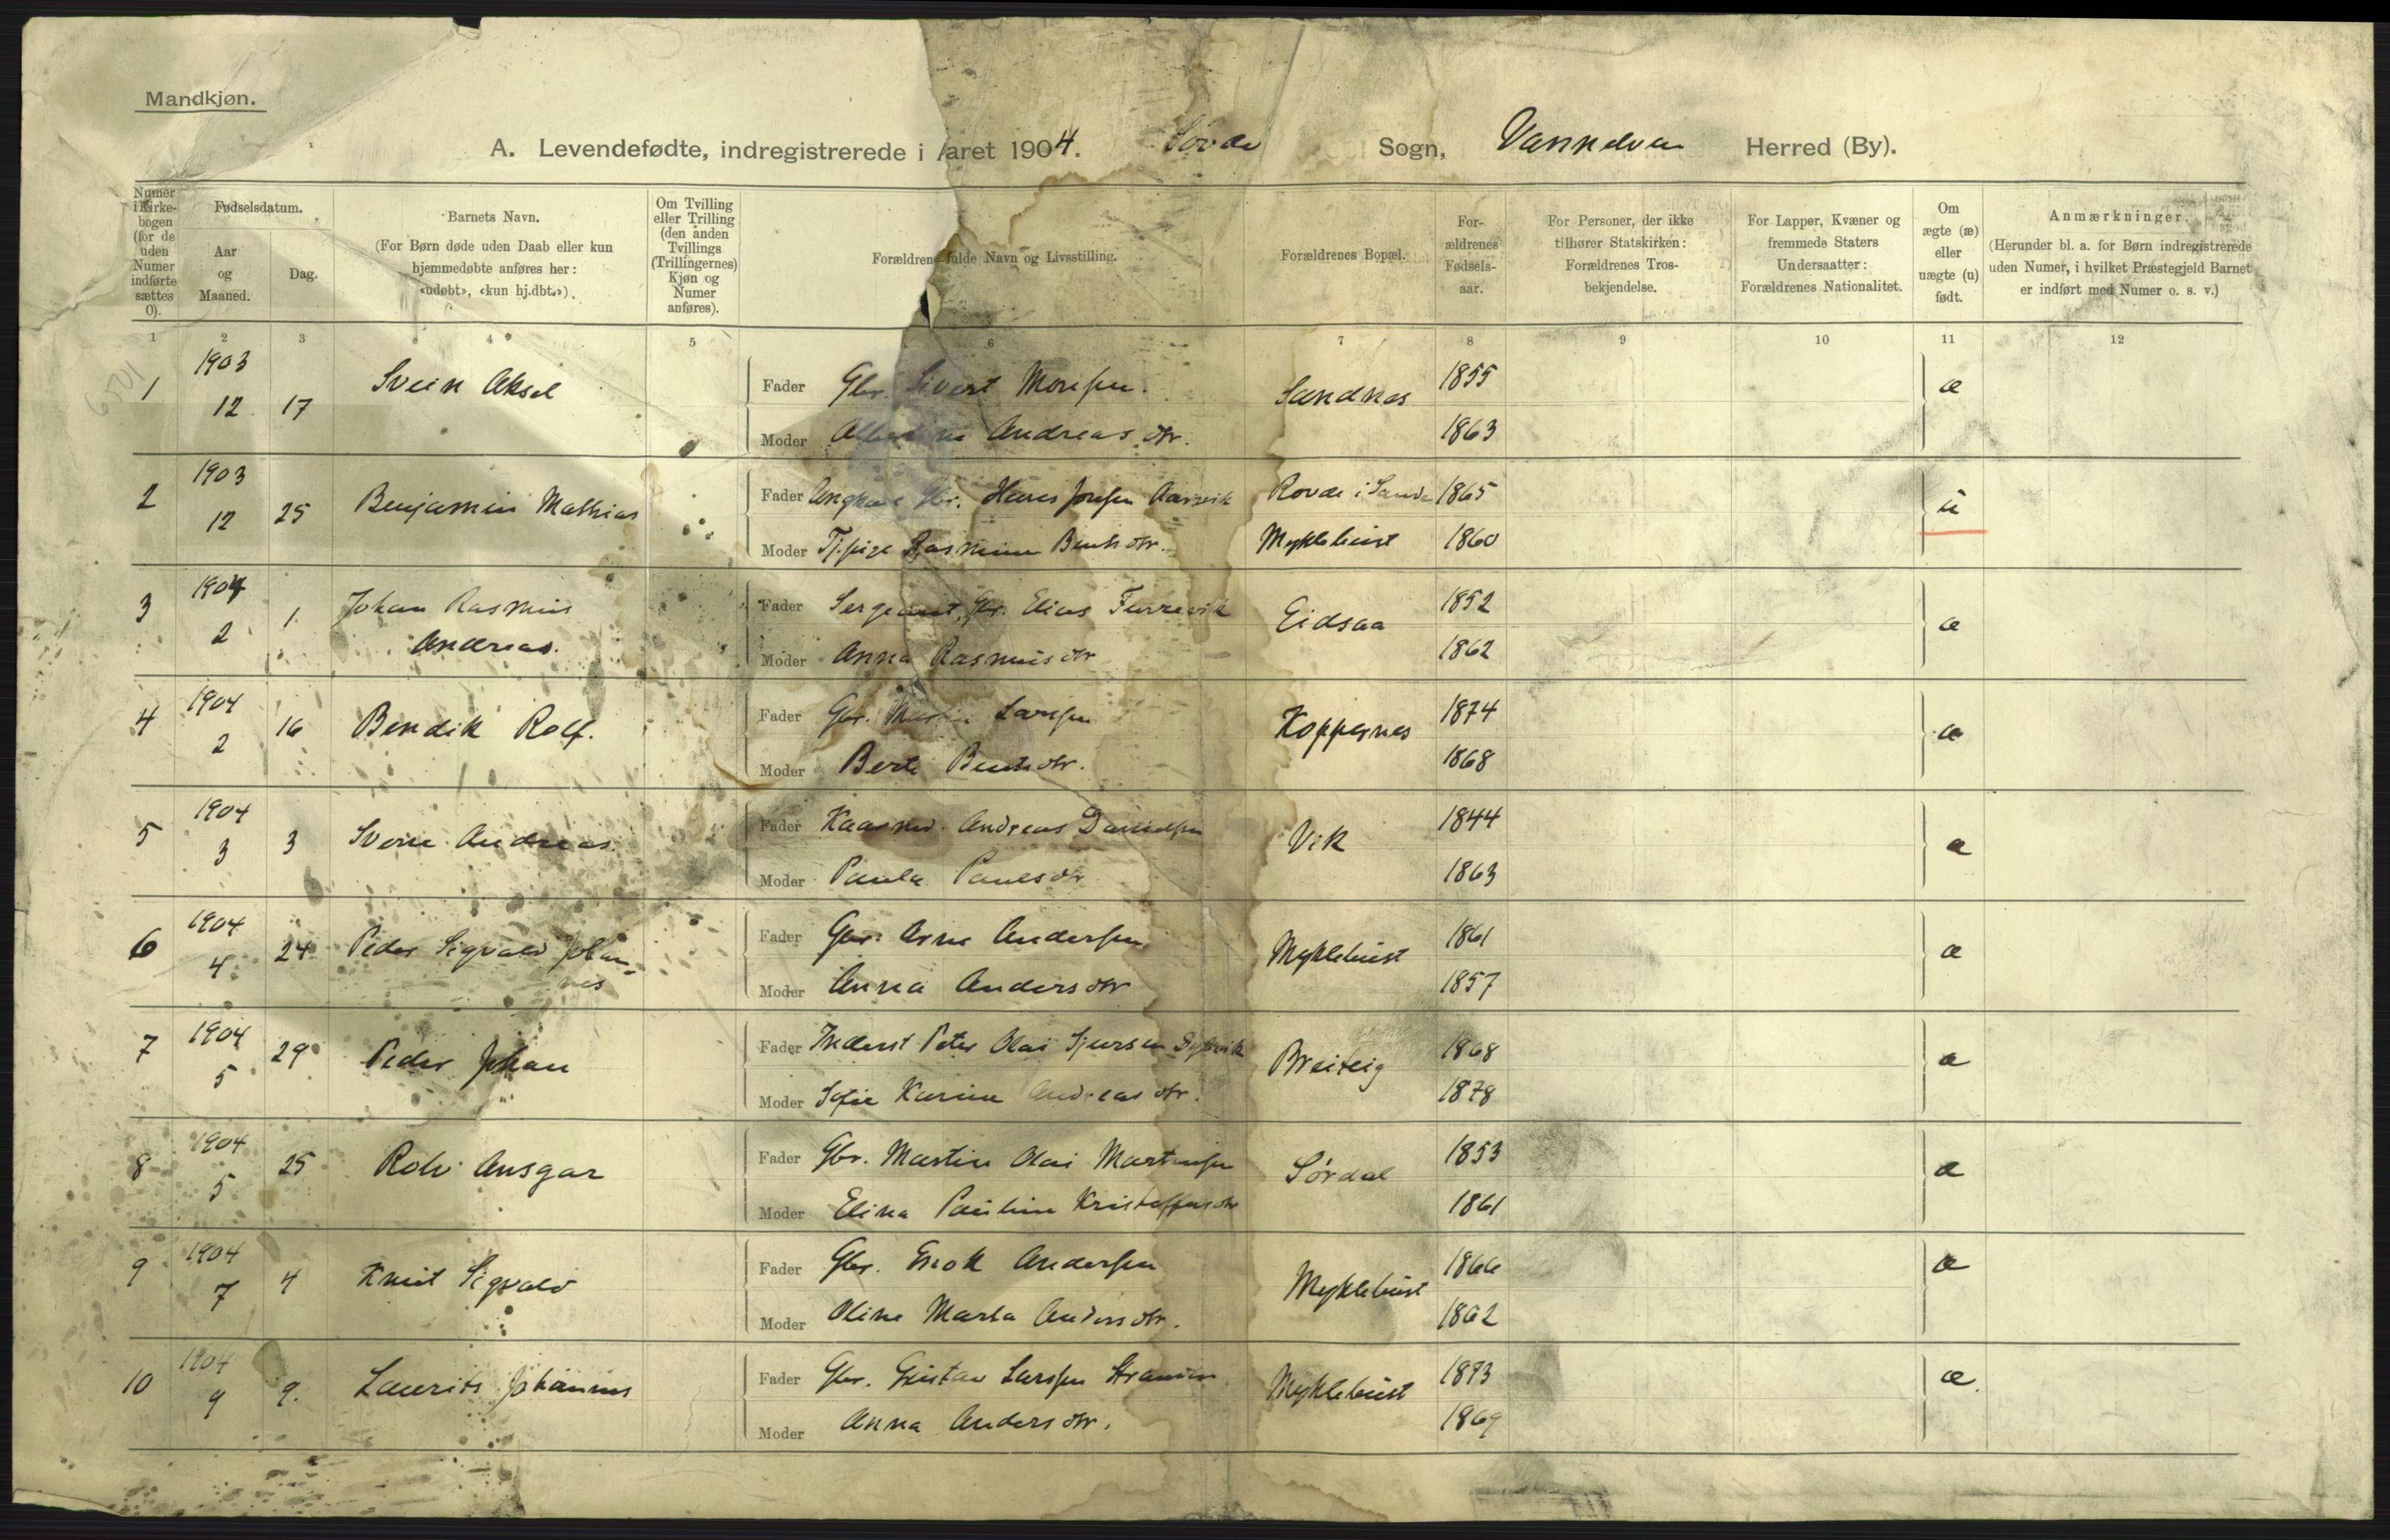 Mandkjøn.
A. Levendefødte, indregistrerede i Aaret 1904. Søvde Sogn, Vannelven Herred (By).
Numer i Kirke-bogen (for de uden Numer indførte sættes 0).
Fødselsdatum.
Aar og Maaned.
Dag.
Barnets Navn.
(For Børn døde uden Daab eller kun hjemmedøbte anføres her: «udøbt», «kun hj.dbt.»).
Om Tvilling eller Trilling (den anden Tvillings (Trillingernes) Kjøn og Numer anføres).
Forældrenes fulde Navn og Livsstilling.
Forældrenes Bopæl.
For-ældrenes Fødsels-aar.
For Personer, der ikke tilhører Statskirken: Forældrenes Tros-bekjendelse.
For Lapper, Kvæner og fremmede Staters Undersaatter: Forældrenes Nationalitet.
Om ægte (æ) eller uægte (u) født.
Anmærkninger.
(Herunder bl. a. for Børn indregistrerede uden Numer, i hvilket Præstegjeld Barnet er indført med Numer o. s. v.)
1 2 3 4 5 6 7 8 9 10 11 12
1 1903 12 17 Svein Aksel
Fader Gbr. Sivert Monsen. Sandnes 1855 æ
Moder Albertine Andreasdtr. 1863
2 1903 12 25 Benjamin Mathias
Fader Ungkarl Gbr. Hans Aarsvik Rovde i Sande 1865 u
Moder Tj.pige Rasmine Bentsdtr. Myklebust 1860
3 1904 2 1. Johan Rasmus Andreas.
Fader Sergeant, Gbr. Elias Furrevik Eidsaa 1852 æ
Moder Anna Rasmusdtr 1862
4 1904 2 16 Bendik Rolf.
Fader Gbr. Martin Larsen Koppernes 1874 æ
Moder Berte Bentsdtr. 1868
5 1904 3 3 Sverre Andreas.
Fader Kaarmd. Andreas Danielsen Vik 1844 æ
Moder Paula Paulsdtr 1863
6 1904 4 24 Peder Sigvald Johannes
Fader Gbr. Arne Andersen Myklebust 1861 æ
Moder Anna Andersdtr 1857
7 1904 5 29 Peder Johan
Fader Inderst Peter Olai Sjursen Breiteig 1868 æ
Moder Sofie Karine Andreasdtr. 1878
8 1904 5 25 Rolv Ansgar
Fader Gbr. Martin Olai Martinsen Sørdal 1853 æ
Moder Elina Pauline Kristoffersdtr 1861
9 1904 7 4 Knut Sigvald
Fader Gbr. Enok Andersen Myklebust 1866 æ
Moder Oline Marta Andersdtr. 1862
10 1904 9 9. Laurits Johannes
Fader Gbr. Gustav Larsen Stranden. Myklebust 1873 æ.
Moder Anna Andersdtr. 1869